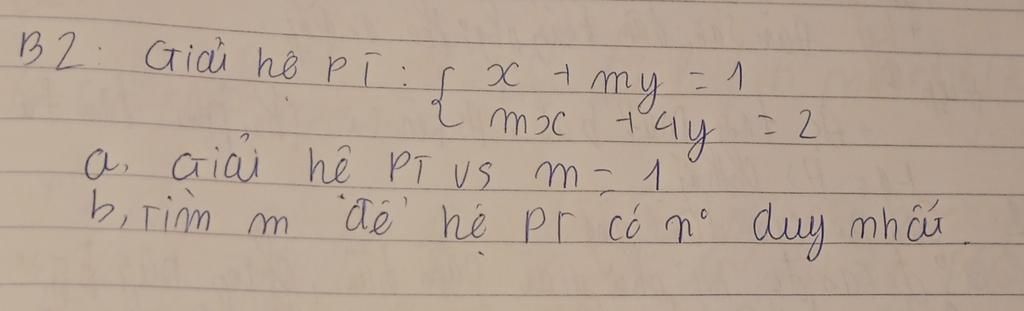 B2: Giải hệ PT: { x + my = 1
mx + 4y = 2
a, Giải hệ PT vs m = 1
b, Tìm m để hệ PT có n° duy nhất.